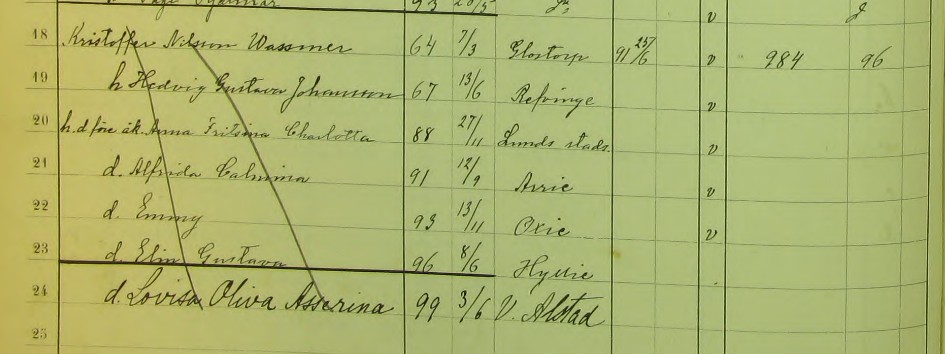 93
v
18 Kristoffer Nilsson Wassmer 64 7/3 Glostorp 91 25/6 v 984 96
19 h Hedvig Gustava Johansson 67 13/6 Refvinge v
20 h. d före äk. Anna Fritsina Charlotta 88 27/11 Lunds stads. v
21 d. Alfrida Calmina 91 12/9 Arrie v
22 d. Emmy 93 13/11 Oxie v
23 d. Elin Gustava 96 8/6 Hyllie
24 d. Lovisa Oliva Asserina 99 3/6 V. Alstad
25